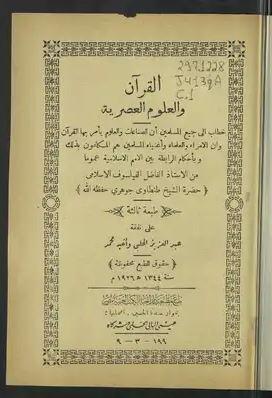 297.1228
J413qA
C.1
القرآن
والعلوم العصرية
خطاب الى جميع المسلمين أن الصناعات والعلوم يأمر بها القرآن
وان الامراء والعلماء وأغنياء المسلمين هم المكلفون بذلك
وبأحكام الرابطة بين الامم الاسلامية عموما
من الاستاذ الفاضل الفيلسوف الاسلامى
﴿ حضرة الشيخ طنطاوى جوهرى حفظه الله ﴾
طبعة ثالثة
على نفقة
عبد العزيز الحلبى وأخيه محمد
﴿ حقوق الطبع محفوظة ﴾
سنة ١٣٤٤ هـ ١٩٢٦ م
عيسى البابى الحلبى وشركاه
١٩٩ – ٣ – ٩